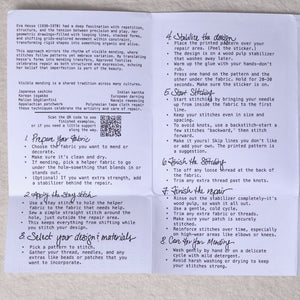 Eva Hesse (1936-1970) had a deep fascination with repetition,
structure, and the tension between precision and flaw. Her
geometric drawings filled with looping lines, stacked forms,
and shifting grids—embraced movement within constraint,
transforming rigid shapes into something organic and alive.
This approach mirrors the rhythm of visible mending, where
stitches follow patterns yet embrace variation. By translating
Hesse's forms into mending transfers, Approved Textiles
celebrates repair as both structured and expressive, echoing
her belief that imperfections are part of the beauty.
Visible mending is a shared tradition across many cultures.
Japanese sashiko
Indian kantha
Korean jogakbo
Norwegian knitting
European tambour work
Navajo reweaving
Appalachian patchwork
Polynesian tapa cloth repair
These techniques celebrate the artistry and care of repair.
Scan the QR code to see
finished examples,
or if you need a little support
along the way.
1. Prepare your fabric
• Choose the fabric you want to mend or
decorate.
• Make sure it's clean and dry.
• If mending, pick a helper fabric to
go under the hole—something thin enough
to stitch through.
• (Optional) If you want extra strength, add
a stabilizer behind the repair.
• Use a stay stitch to hold the helper
fabric to the fabric that needs help.
• Sew a simple straight stitch around the
hole, just outside the repair area.
• This keeps everything from shifting while
you stitch.
3. Select your design & materials
• Pick a pattern to stitch.
• Gather your thread, needles, and any
extras like beads or patches that you
want to incorporate.
4. Stabilize the design
• Place the printed paper over your
repair area. (Peel! the sticker.)
• The design is on a wood pulp stabilizer
that washes away later.
• Warm up the glue with your hands—don't
rub.
• Press one hand on the pattern and the
other under the fabric. Hold for 20-30
seconds. Make sure the sticker is on.
5. Start Stitching
• Start stitching by bringing your needle
up from inside the fabric to the first
line.
• Keep your stitches even in size and
spacing.
• To avoid knots, use a backstitch—start a
few stitches "backward", then stitch
forward.
• Make it yours! Skip lines you don't like
or add your own. The printed pattern is
a suggestion.
6. Finish the Stitching
• Tie off any loose thread at the back of
the fabric.
• Trim any extra thread past the knots.
7. Finish the repair
• Rinse out the stabilizer completely—it's
wood pulp, so wash it all out.
• Use a gentle, cold cycle.
• Trim any extra fabric or threads.
• Make sure your patch is securely
stitched.
• Reinforce stitches over time, especially
on high-wear areas like elbows or knees.
8. Care for Your Mending
• Wash gently by hand or on a delicate
cycle with mild detergent.
• Avoid harsh wringing or drying to keep
your stitches strong.